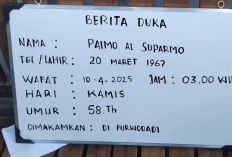 BERITA DUKA
NAMA : PAIMO AL SUPARMO
TGL/LAHIR: 20 MARET 1967
WAFAT : 10-4-2025 JAM : 03.00 WI
HARI : KAMIS
UMUR : 58.Th
DIMAKAMKAN : DI PURWODADI